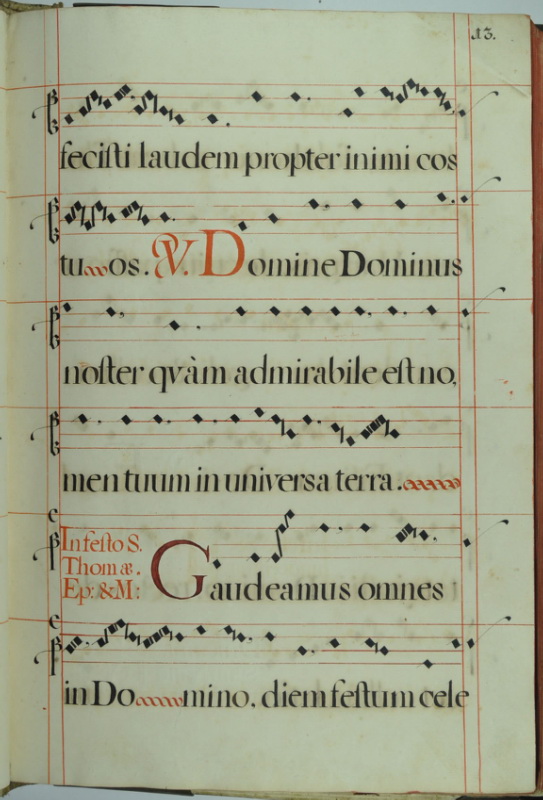 13.
feciſti laudem propter inimi cos
tu os. V. Domine Dominus
noſter qvàm admirabile eſt no,
men tuum in universa terra.
In feſto S.
Thom æ.
Ep: & M:
Gaudeamus omnes
in Do mino, diem feſtum cele